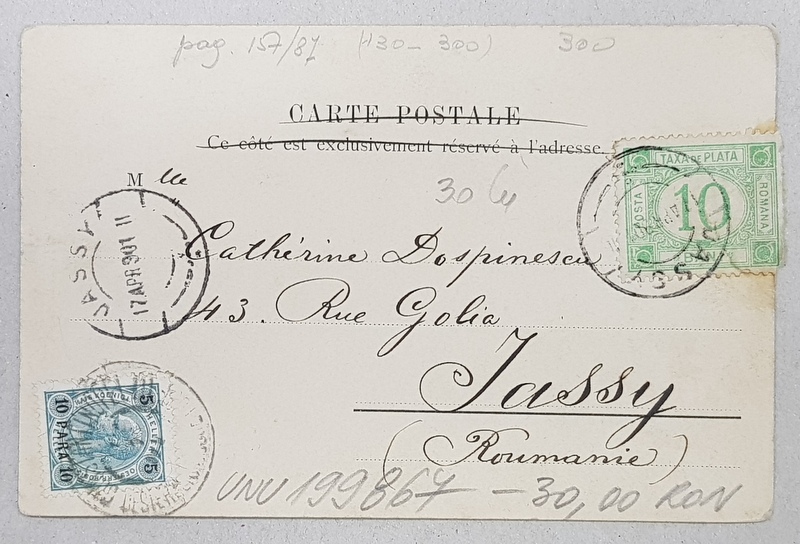 pag. 157/87 (130-300) 300
CARTE POSTALE
Ce côté est exclusivement réservé à l'adresse.
TAXA DE PLATA
POSTA
10
ROMANA
JASSY
M lle
30 lei
JASSY
17 APR 901 11
Cathérine Dospinescu
43. Rue Golia
Jassy
(Roumanie)
5 5
10 PARA 10
UNU 199867 - 30,00 RON